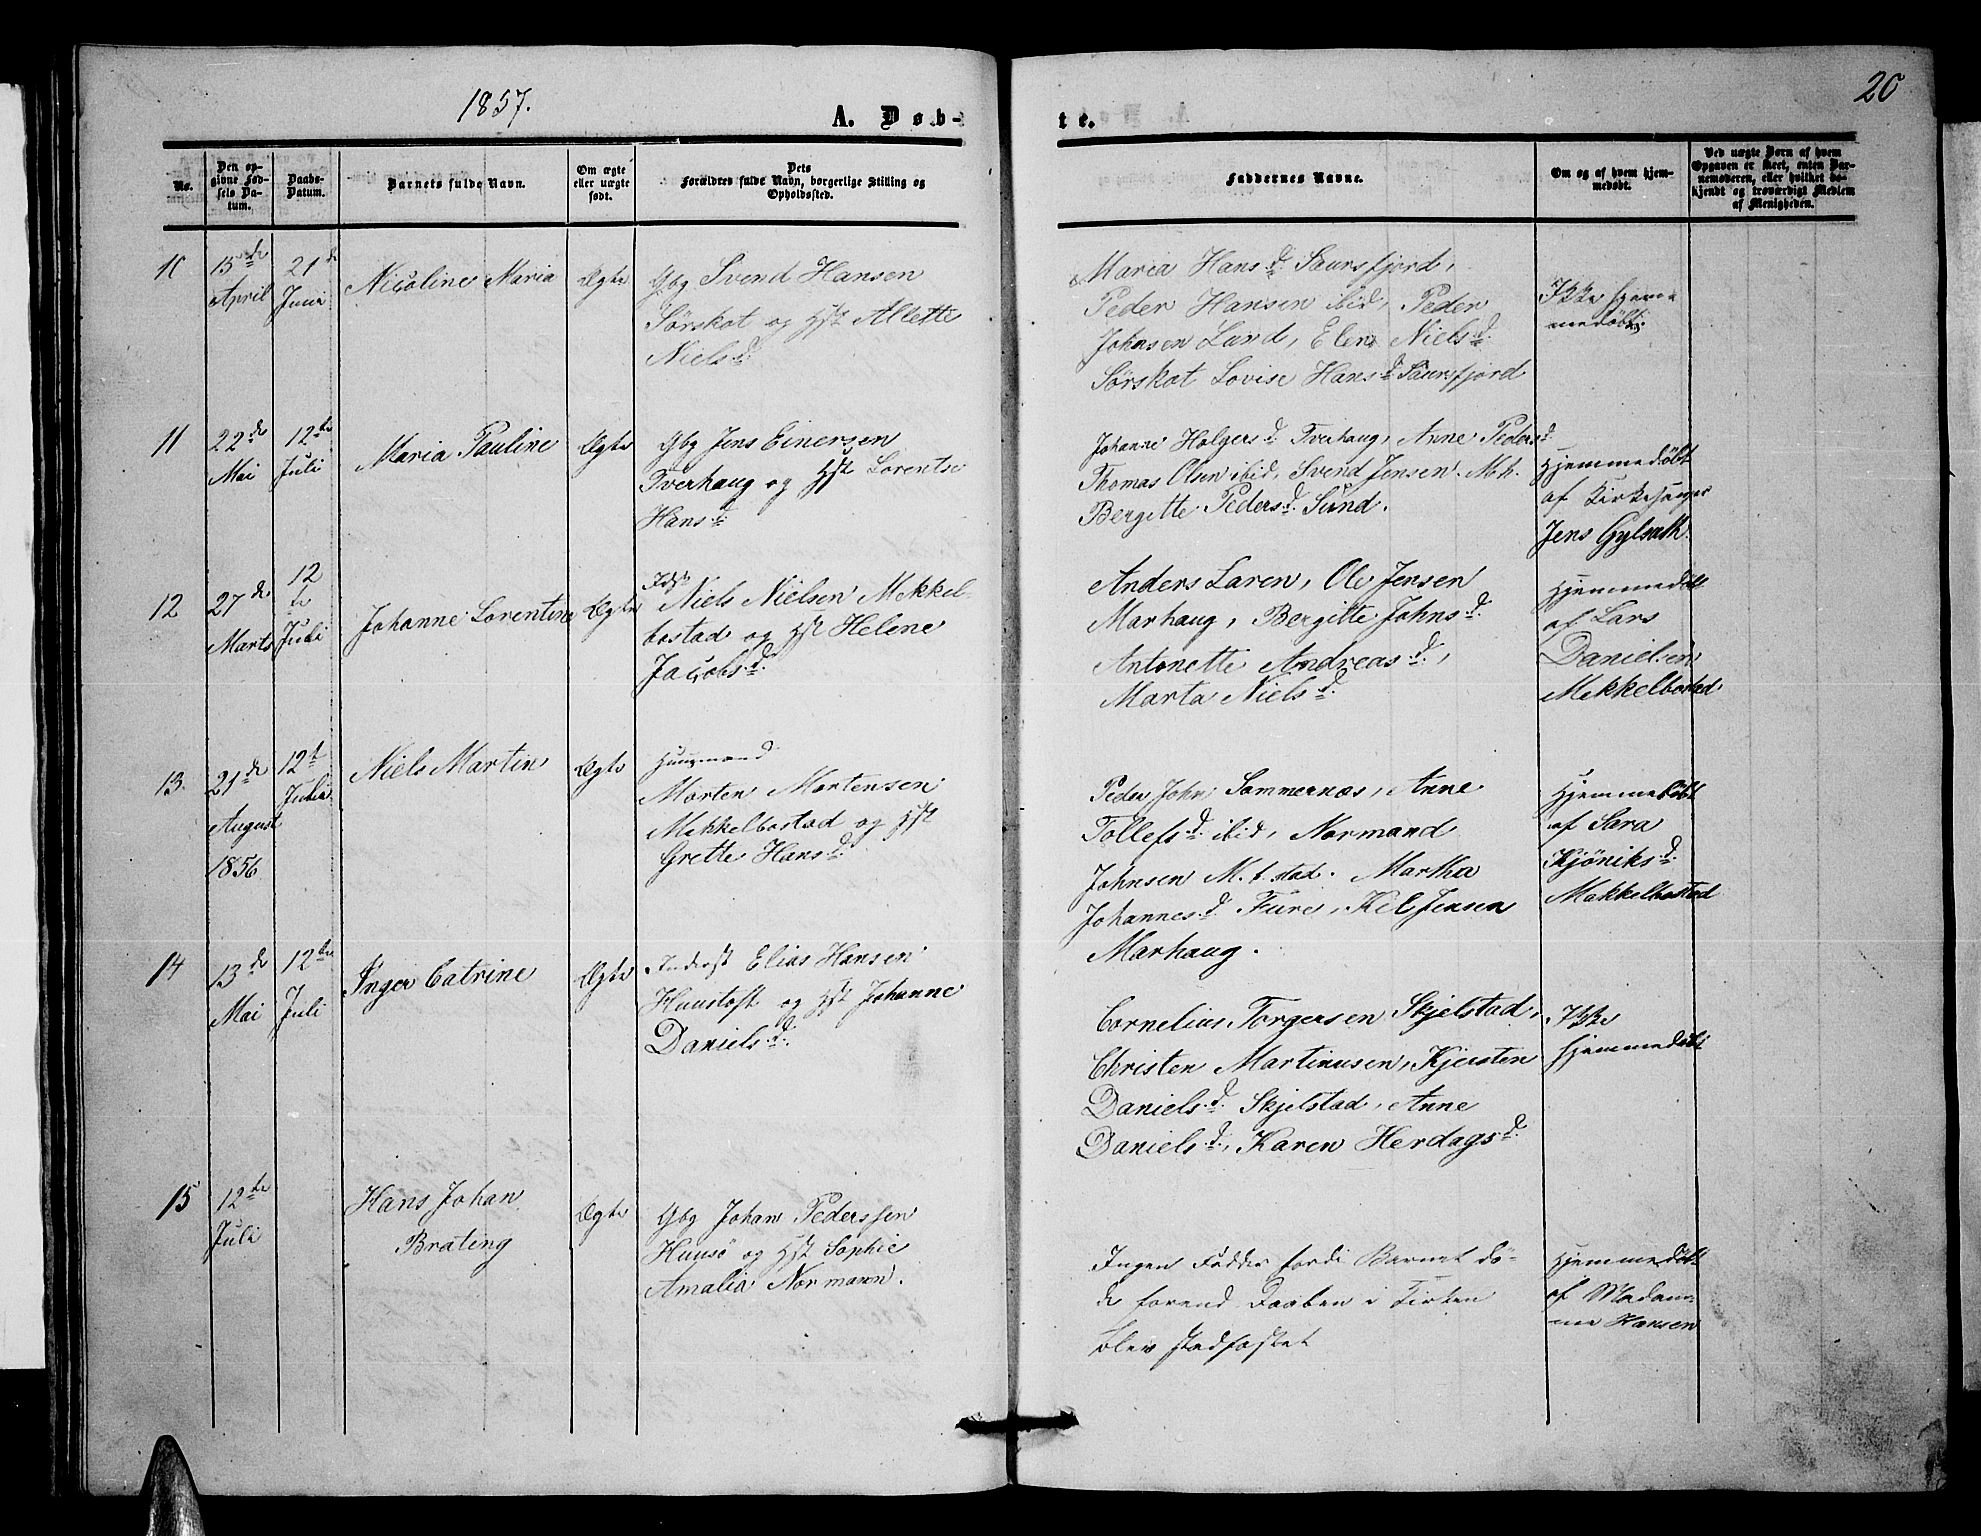 1857.
A. Døb-
te.
20
No.
Den op-
givne Fød-
sels Da-
tum.
Daabs-
Datum.
Barnets fulde Navn.
Om ægte
eller uægte
født.
Dets
Forældres fulde Navn, borgerlige Stilling og
Opholdssted.
Faddernes Navne.
Om og af hvem hjem-
medøbt.
Ved uægte Børn af hvem
Opgaven er skeet, enten Bar-
nemoderen, eller hvilket be-
kjendt og troværdigt Medlem
af Menigheden.
15de
April
21de
Juni
Nicoline Maria
Ægte
Gbg Svend Hansen
Sörskot og Hst Allette
Nielsd.
Maria Hansd. Saursfjord,
Peder Hansen ibid, Peder
Johnsen Lund, Elen Nielsd.
Sörskot Lovise Hansd. Saursfjord
Ikke hjem-
medöbt.
11
22de
Mai
12te
Juli
Maria Pauline
Ægte
Gbg Jens Einersen
Tverhaug og Hst Lorentse
Hansd.
Johanne Holgersd. Tverhaug, Anne Pedersd.
Thomas Olsen ibid, Svend Jensen M.h.
Bergitte Pedersd. Sund.
Hjemmedøbt
af Kirkesanger
Jens Gylseth.
12
27de
Marts
12
te
Juli
Johanne Lorentine
Ægte
Idst
Niels Nielsen Mekkel-
bostad og Hst Helene
Jacobsd.
Anders Laren, Ole Jensen
Marhaug, Bergitte Johnsd.
Antonette Andreasd.,
Marta Nielsd.
Hjemmedøbt
af Lars
Danielsen
Mekkelbostad.
13.
21de
August
1856
12te
Juli
Niels Martin
Ægte
Huusmand
Morten Mortensen
Mekkelbostad og Hst
Grette Hansd.
Peder John Sommernæs, Anne
Tollefsd. ibid, Normand
Johnsen M.b.stad. Martha
Johannesd. Fure, Kil Jensen
Marhaug.
Hjemmedøbt
af Sara
Kjöniksd.
Mekkelbostad
14
13de
Mai
12te
Juli
Inger Catrine
Ægte
Inderst Elias Hansen
Haustoft og Hst Johanne
Danielsd.
Cornelius Torgersen Skjelstad,
Christen Martinusen, Kjersten
Danielsd. Skjelstad, Anne
Danielsd., Karen Herdagsd.
Ikke
hjemmedöbt
15
12te
Juli
Hans Johan
Brating
Ægte
Gbg Johan Pederssen
Huusö og Hst Sophie
Amalia Normann.
Ingen Fadder fordi Barnet dö-
de forend Daaben i Kirken
blev stadfæstet
Hjemmedøbt
af Madam-
me Hansen